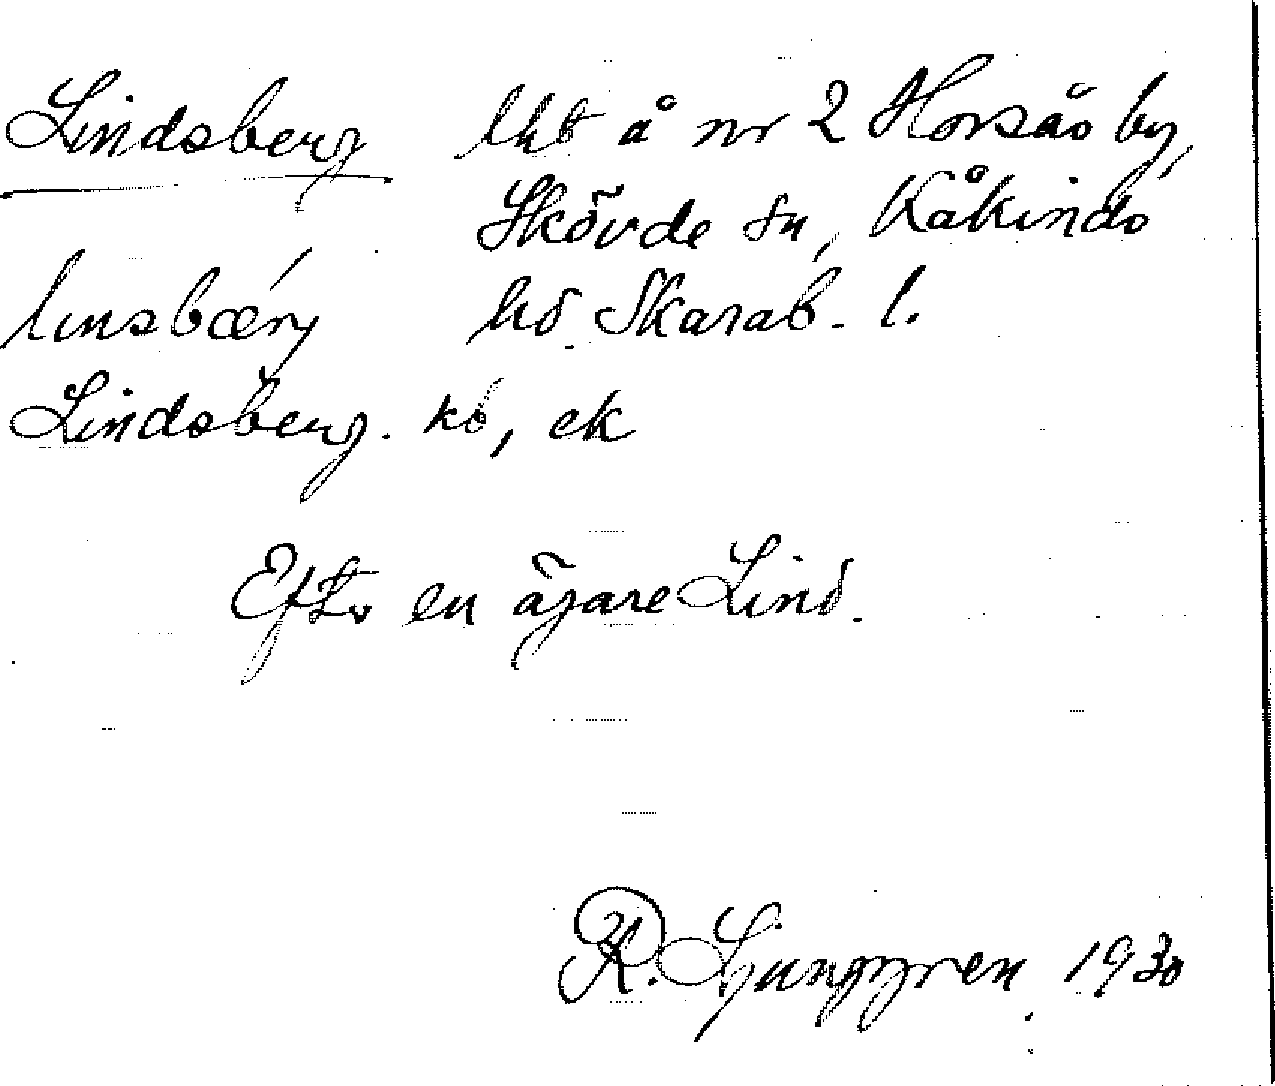 Lindsberg lht å nr 2 Horsås by,
Skövde sn, Kåkinds
linsbærj hd. Skarab. l.
Lindsberg. kb, ek
Eft. en ägare Lind.
R. Ljunggren 1930